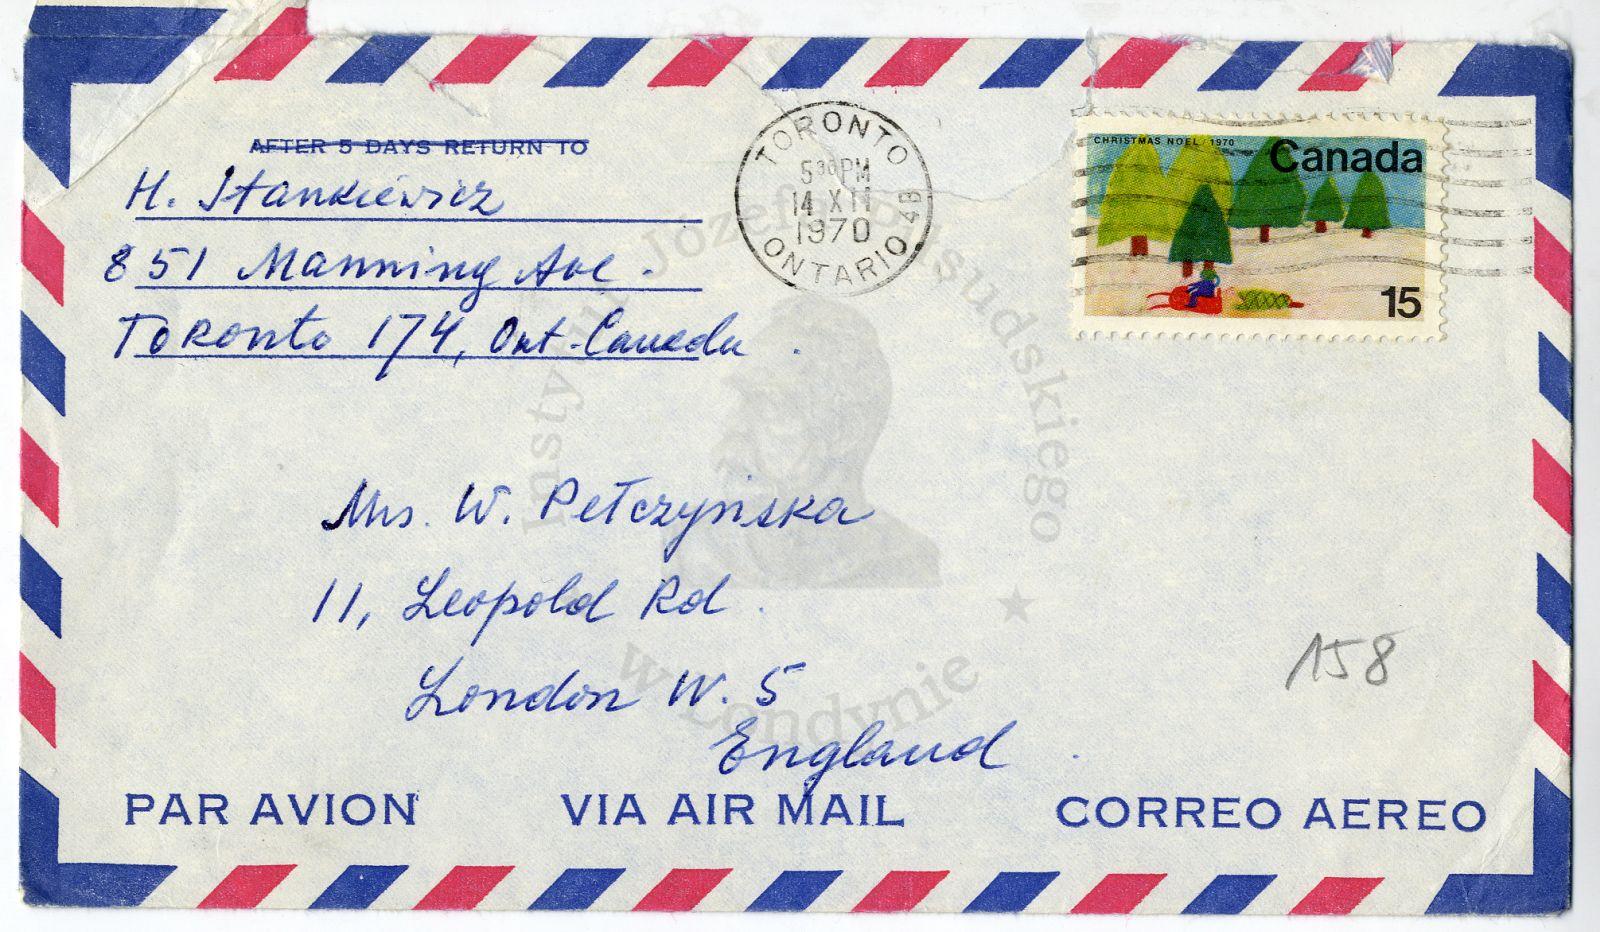 AFTER 5 DAYS RETURN TO
H. Stankiewicz
851 Manning Ave.
Toronto 174, Ont. Canada.
TORONTO
5 30 PM
14 XII
1970
ONTARIO
4B
CHRISTMAS NOEL 1970
Canada
15
Mrs. W. Pełczyńska
11, Leopold Rd.
London W. 5
England.
158
PAR AVION VIA AIR MAIL CORREO AEREO
Instytut Józefa Piłsudskiego
w Londynie